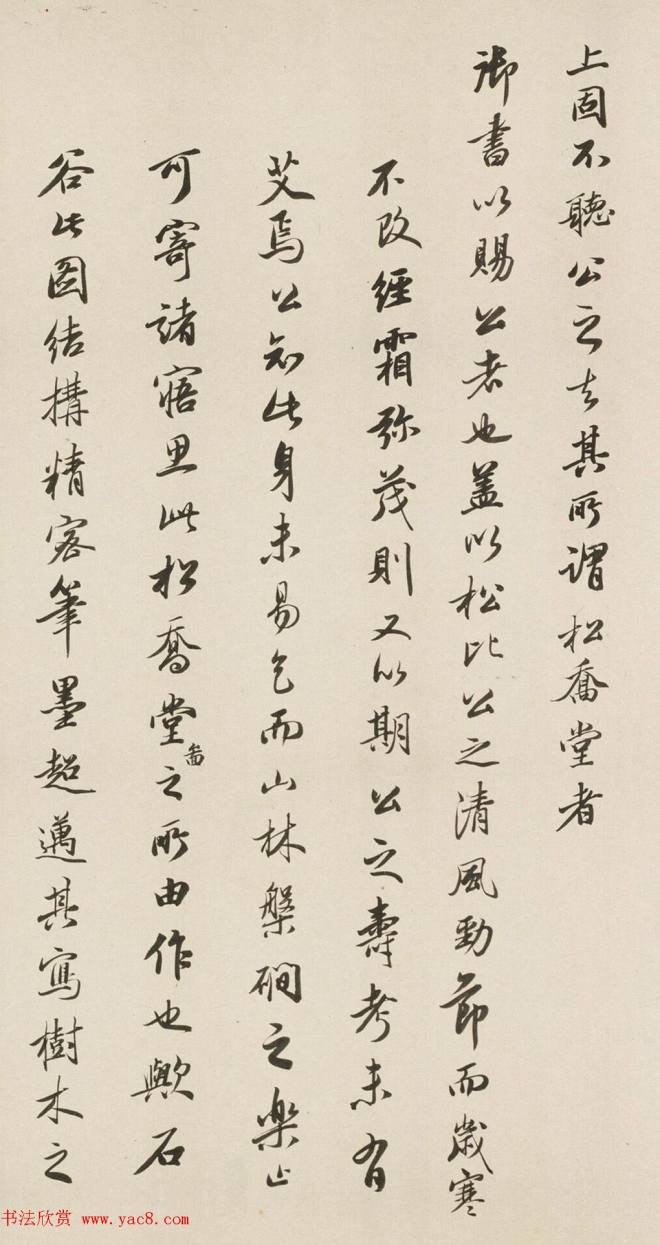 上固不聽公之去其所謂松喬堂者
御書以賜公者也蓋以松比公之清風勁節而歲寒
不改經霜弥茂則又以期公之壽考未有
艾焉公知此身未易乞而山林槃磵之樂止
可寄諸寤思此松喬堂圖之所由作也歟石
谷此图结搆精密筆墨超邁其寫樹木之
书法欣赏 www.yac8.com